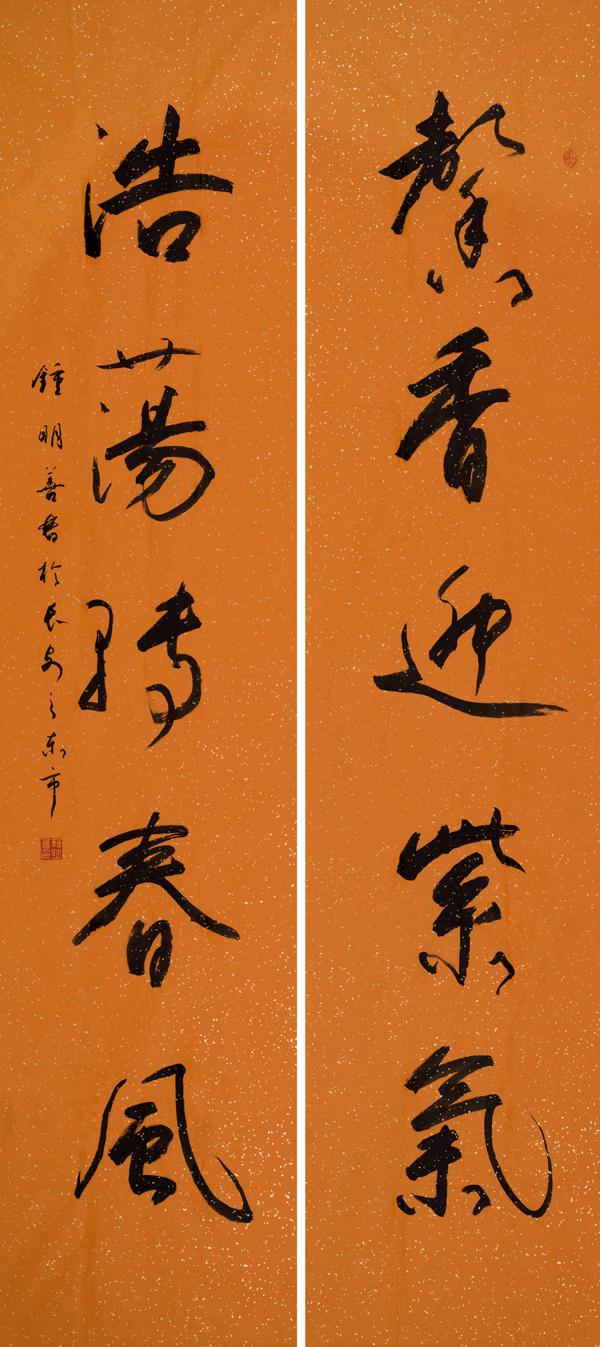 馨香迎紫氣
浩蕩轉春風
鍾明善書於長安之東市